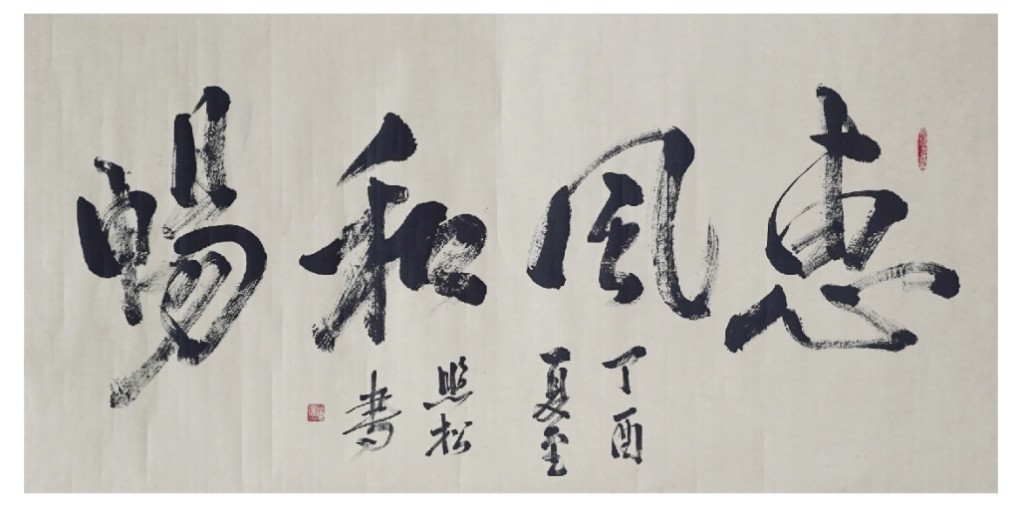 惠風和暢
丁酉
夏至
照松
書